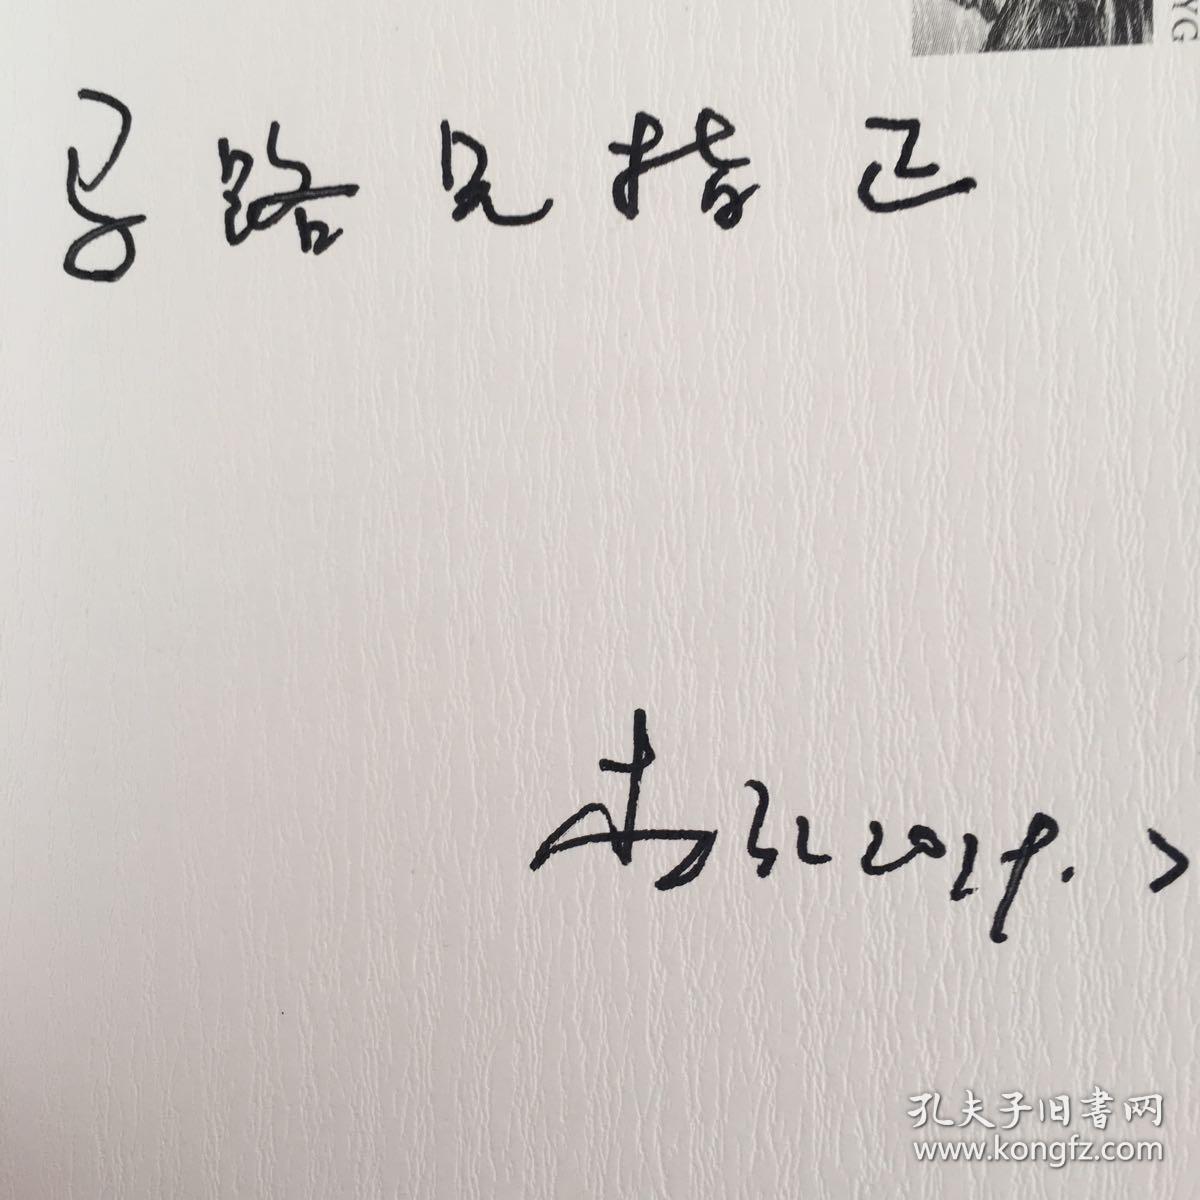 YG
路兄指正
2019.
孔夫子旧書网
www.kongfz.com